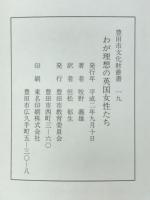 豊田市文化財叢書 一九
わが理想の英国女性たち
発行年 平成二年九月十日
著者 牧野 義雄
訳者 恒松 郁生
発行 豊田市教育委員会
豊田市西町三―六〇
印刷 東名印刷株式会社
豊田市広久手町五―三〇―八